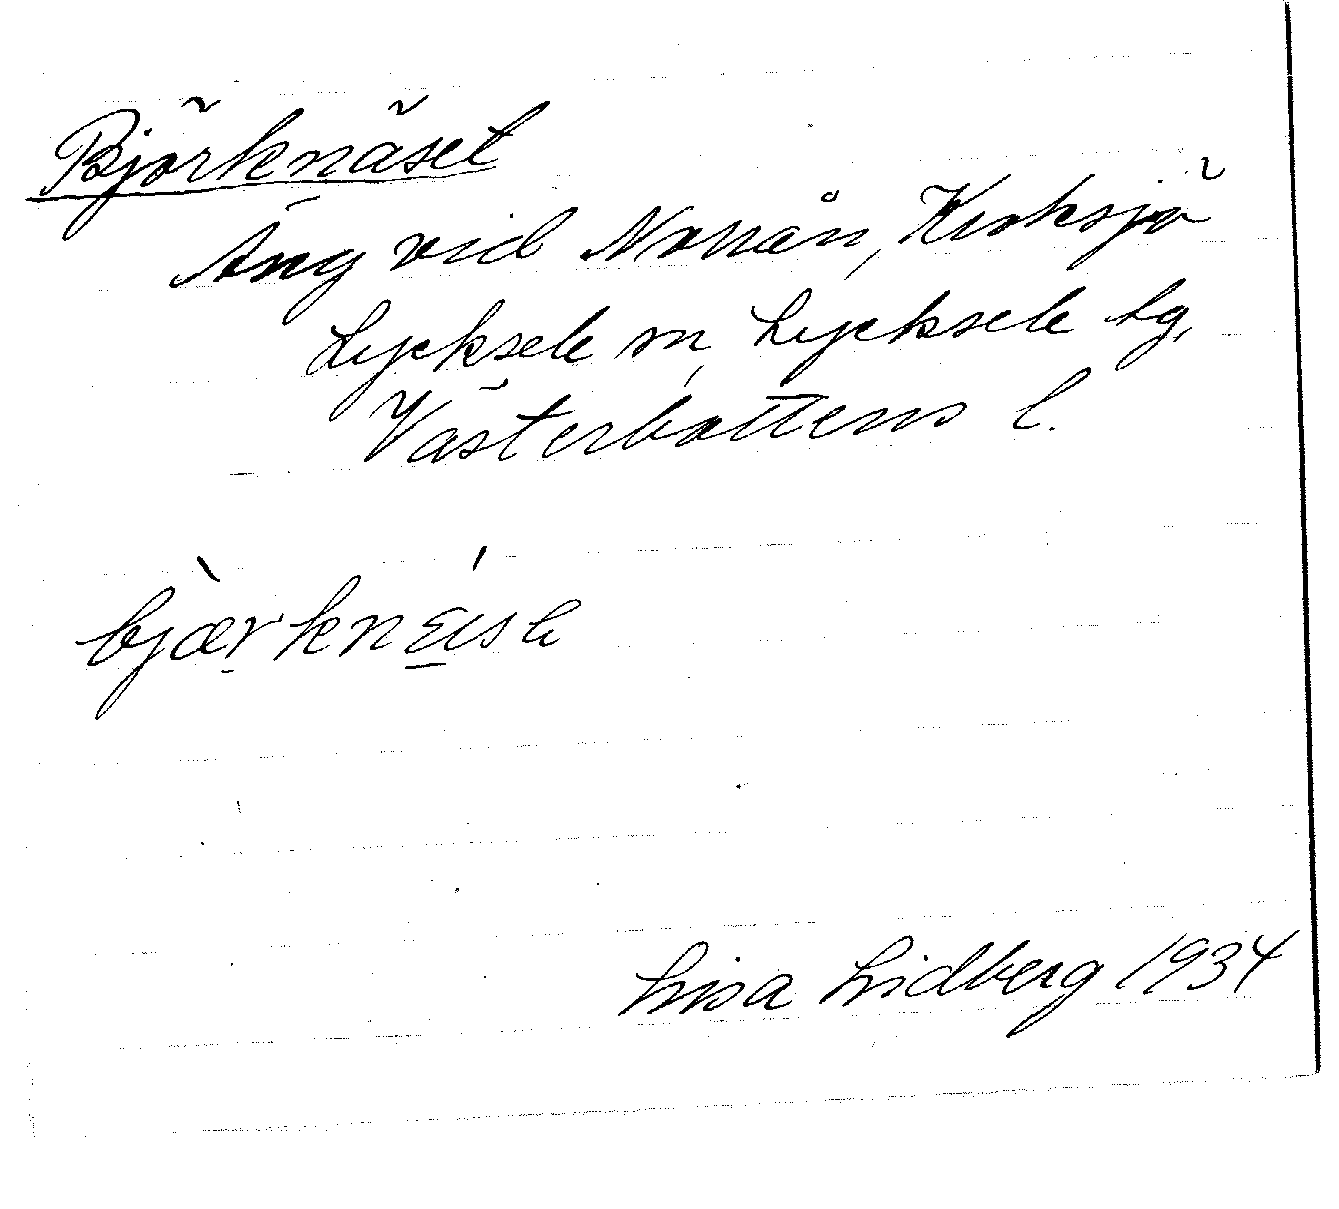 Björknäset
Äng vid Norrån, Kroksjö
Lycksele sn, Lycksele tg,
Västerbottens l.
bjærknεisɩ
Lisa Lidberg 1934